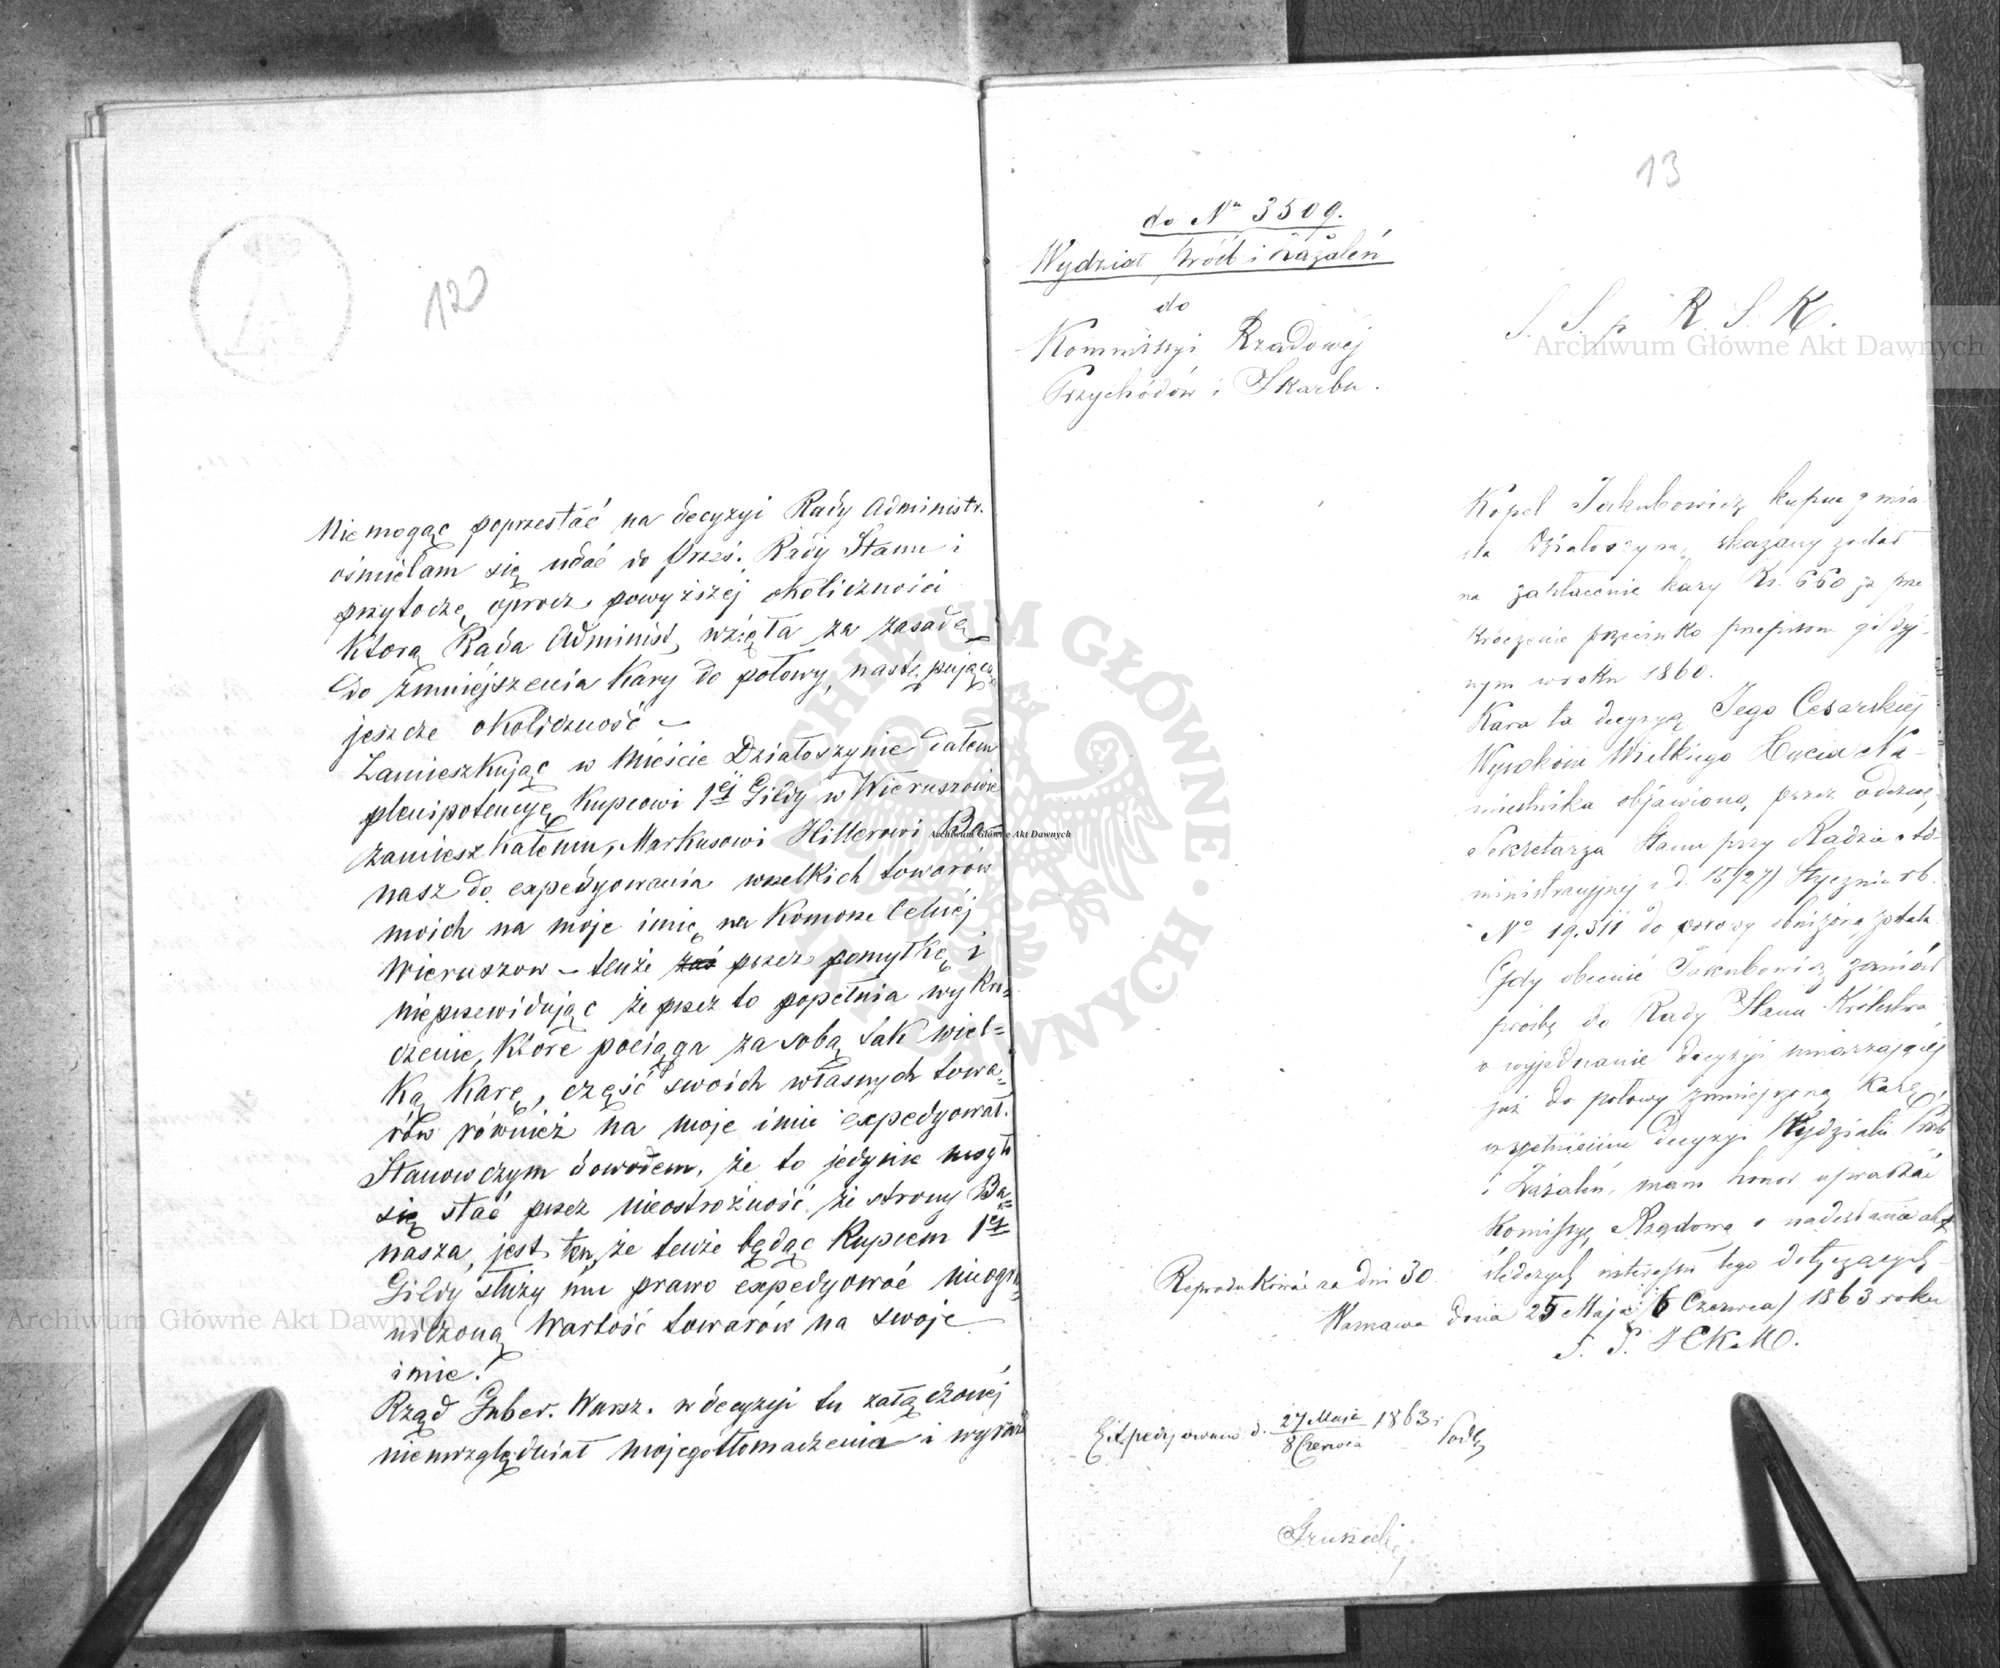 120
Nie mogąc poprzestać na decyzyi Rady Administr.
ośmielam się udać do Prześ. Rady Stanu i
przytoczę oprocz powyższej okoliczności
Ktorą Rada Administ. wzięła za zasadę
do zmniejszenia Kary do połowy, następującą
jeszcze okoliczność –
Zamieszkując w Mieście Działoszynie dałem
plenipotencyę Kupcowi 1ej Gildy w Wieruszowie
zamieszkałemu, Markusowi Hillerowi Ba=
nasz do expedyowania wszelkich towarów
moich na moje imię na Komorze Celnéj
Wieruszow – tenże przez pomyłkę i
nieprzewidując że przez to popełnia wykro=
czenie, Które pociąga za sobą tak wiel=
Ką Karę, część swoich własnych towa=
rów również na moje imie expedyował.
Stanowczym dowodem, że to jedynie mogło
się stać przez nieostrożność ze strony Ba=
nasza, jest ten, że tenże będąc Kupcem 1ej
Gildy służy mu prawo expedyować nieogra=
niczoną Wartość towarów na swoje
imie!
Rząd Guber. Warsz. w decyzyi tu załączonéj
nieuwzględniał mojego tłomaczenia i wyraził
13
do No 3509.
Wydział próśb i Zażaleń
do
Kommissyi Rządowéj
Przychodów i Skarbu.
S. S. p. R. S. K.
Kopel Jakubowicz kupiec z mia
sta Działoszyna, skazany został
na zapłacenie kary Rs. 660 za prze
kroczenie przeciwko przepisom gildyj
nym w roku 1860.
Kara ta decyzyą Jego Cesarskiéj
Wysokości Wielkiego Xięcia Na-
miestnika objawioną przez odezwę
Sekretarza Stanu przy Radzie Ad-
ministracyjnej z d. 15/27/ Stycznia rb.
No 19.311 do połowy zniżoną została
Gdy obecnie Jakubowicz zaniósł
prośbę do Rady Stanu Królestwa
o wyjednanie decyzyi umarzającéj
już do połowy zmniejszoną karę,
w spełnieniu decyzyi Wydziału Próśb
i Zażaleń, mam honor upraszać
Komissyę Rządową o nadesłanie akt
śledczych interessu tego dotyczących
Reprodukować za dni 30.
Warszawa dnia 25 Maja /6 Czerwca/ 1863 roku
Expedyowano d. 27 Maja / 8 Czerwca 1863 r.
Archiwum Główne Akt Dawnych
Archiwum Główne Akt Dawnych
Archiwum Główne Akt Dawnych
ARCHIWUM GŁÓWNE AKT DAWNYCH